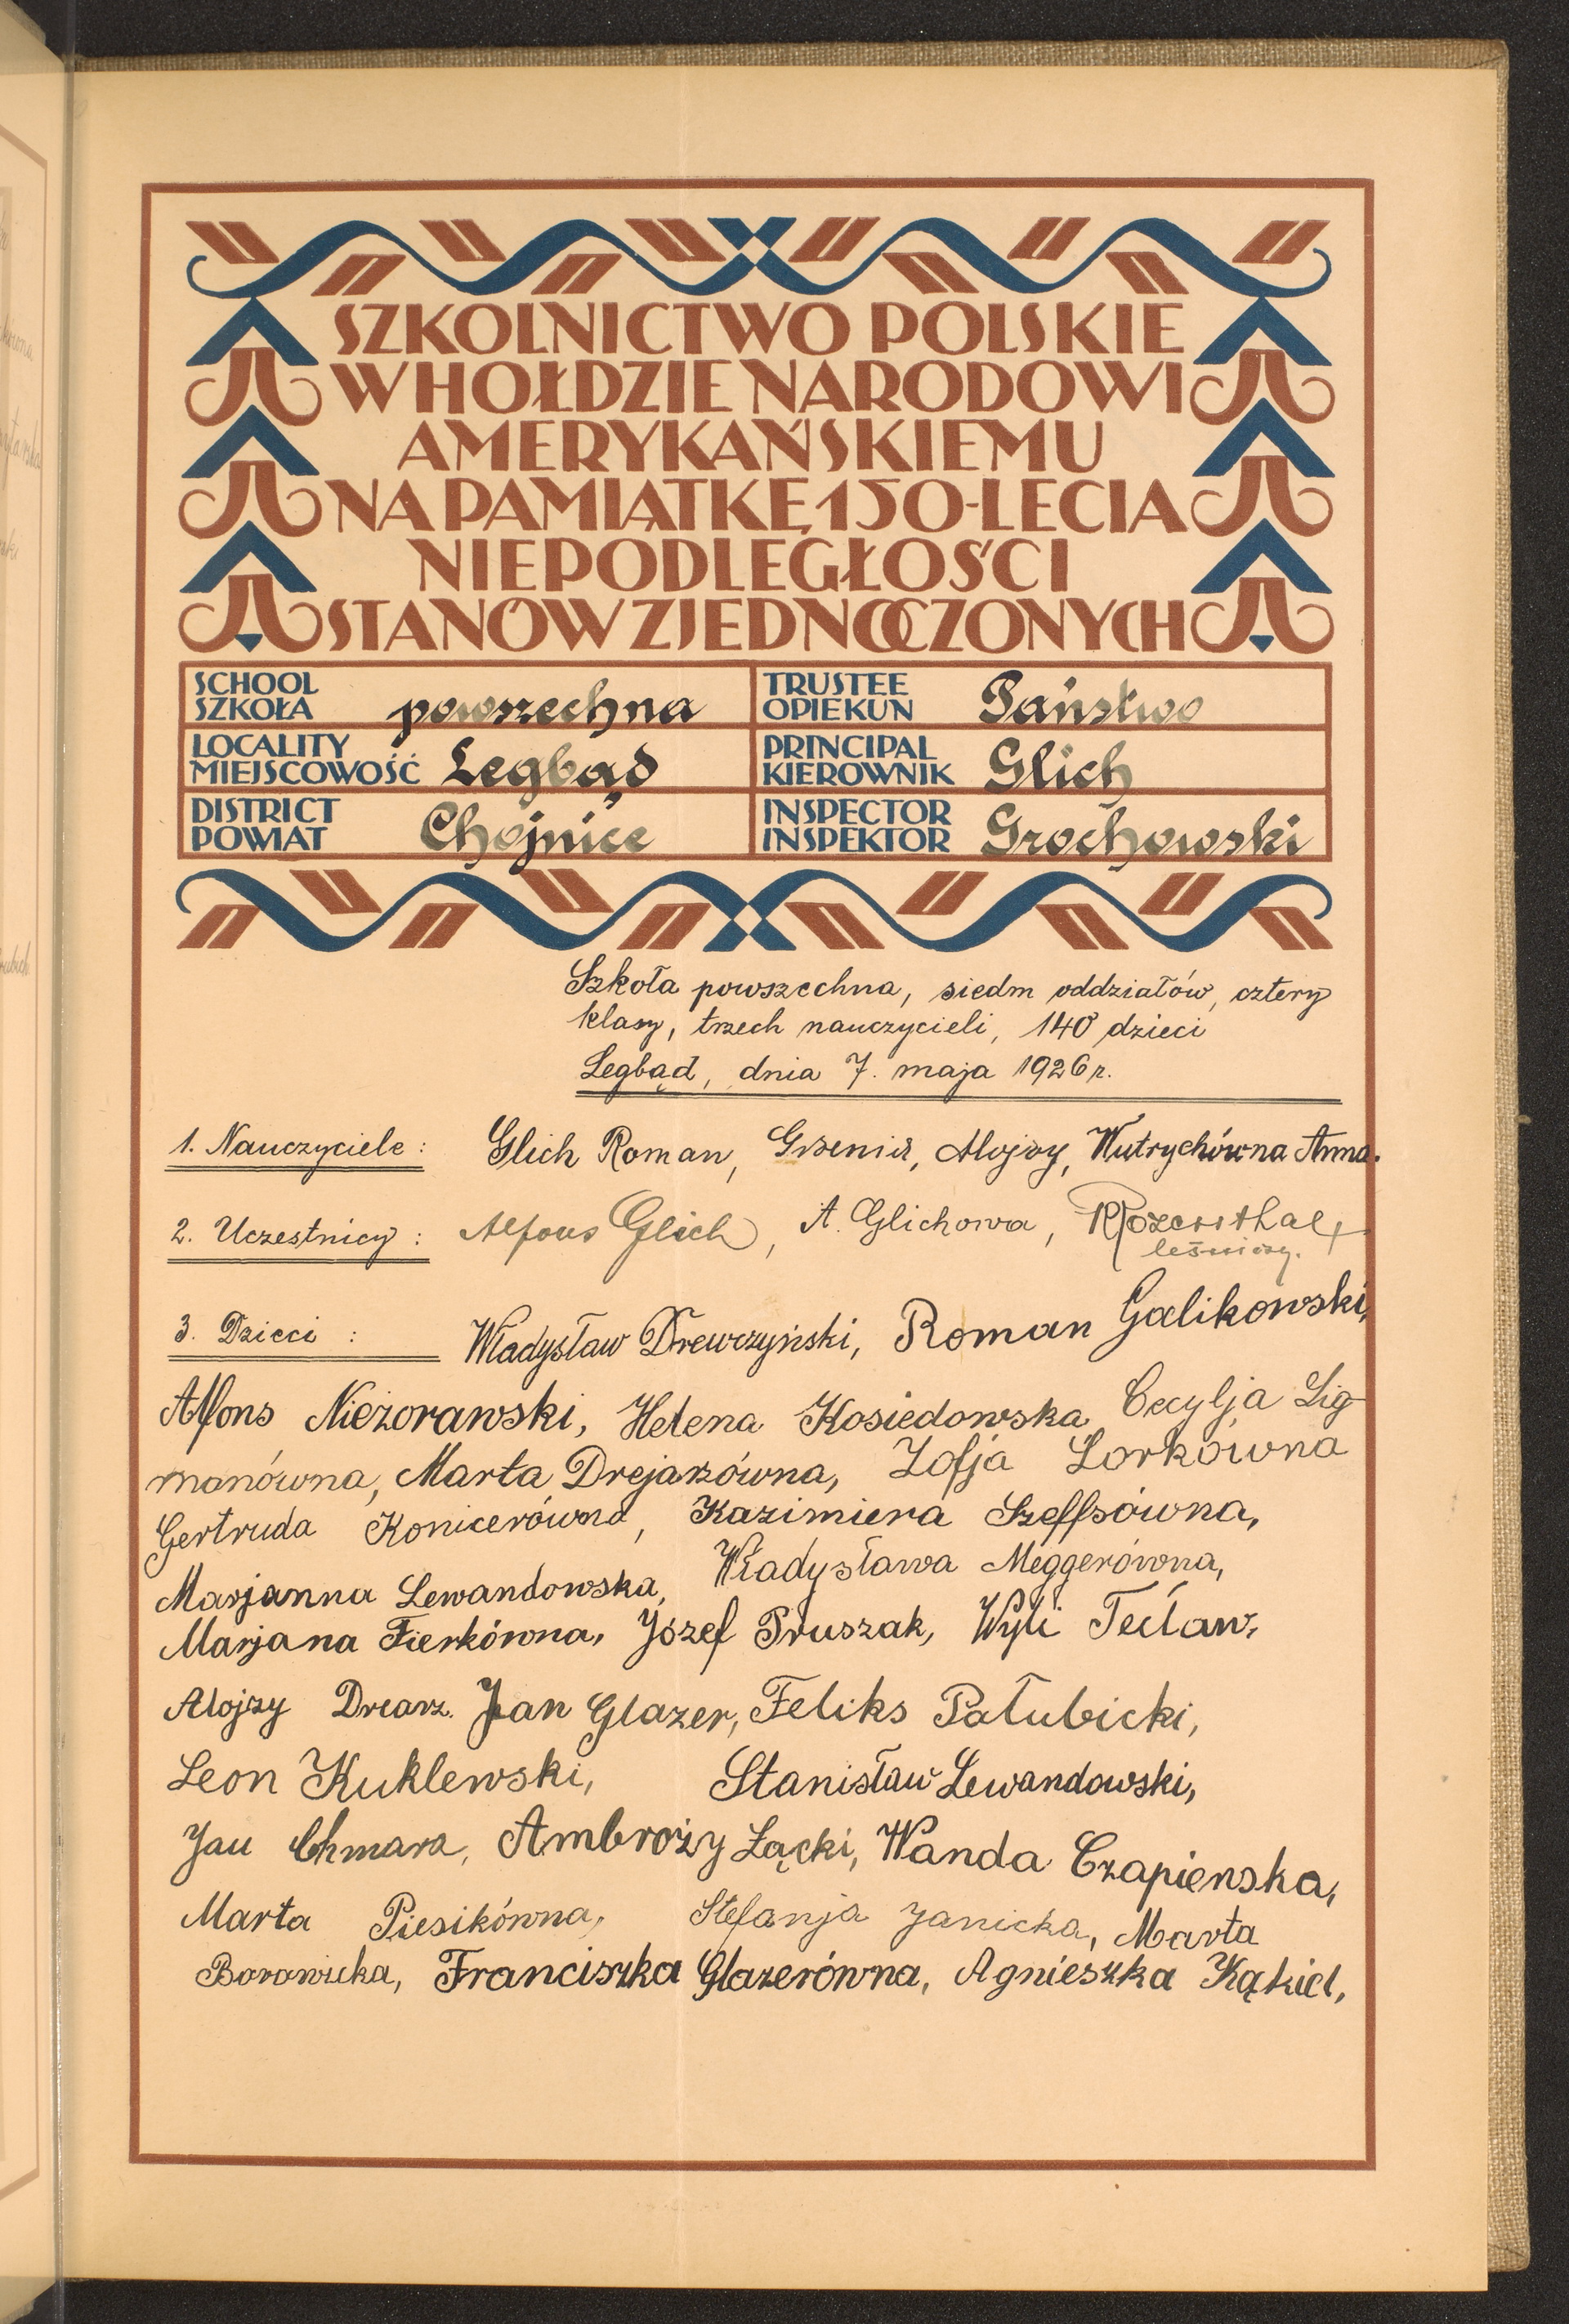 SZKOLNICTWO POLSKIE
W HOŁDZIE NARODOWI
AMERYKAŃSKIEMU
NA PAMIĄTKĘ 150-LECIA
NIEPODLEGŁOŚCI
STANÓW ZJEDNOCZONYCH
SCHOOL
SZKOŁA powszechna
TRUSTEE
OPIEKUN Państwo
LOCALITY
MIEJSCOWOŚĆ Legbąd
PRINCIPAL
KIEROWNIK Glich
DISTRICT
POWIAT Chojnice
INSPECTOR
INSPEKTOR Grochowski
Szkoła powszechna, siedm oddziałów, cztery
klasy, trzech nauczycieli, 140 dzieci
Legbąd, dnia 7. maja 1926 r.
1. Nauczyciele: Glich Roman, Alojzy, Wutrychówna Anna.
2. Uczestnicy: Alfons Glich, A. Glichowa, Rozenthal
leśniczy.
3. Dzieci: Władysław Drewczyński, Roman Galikowski,
Alfons Nieżorawski, Helena Kosiedowska, Cecylja Lig
manówna, Marta Drejarzówna, Zofja Lorkówna
Gertruda Konicerówna, Kazimiera Szeffsówna,
Marjanna Lewandowska, Władysława Meggerówna,
Marjana Fierkówna, Józef Pruszak, Wyli Teclaw,
Alojzy Drearz. Jan Glazer, Feliks Pałubicki,
Leon Kuklewski, Stanisław Lewandowski,
Jan Chmara, Ambroży Łącki, Wanda Czapienska,
Marta Piesikówna, Stefanja Janicka, Marta
Borowicka, Franciszka Glazerówna, Agnieszka Kąkiel,